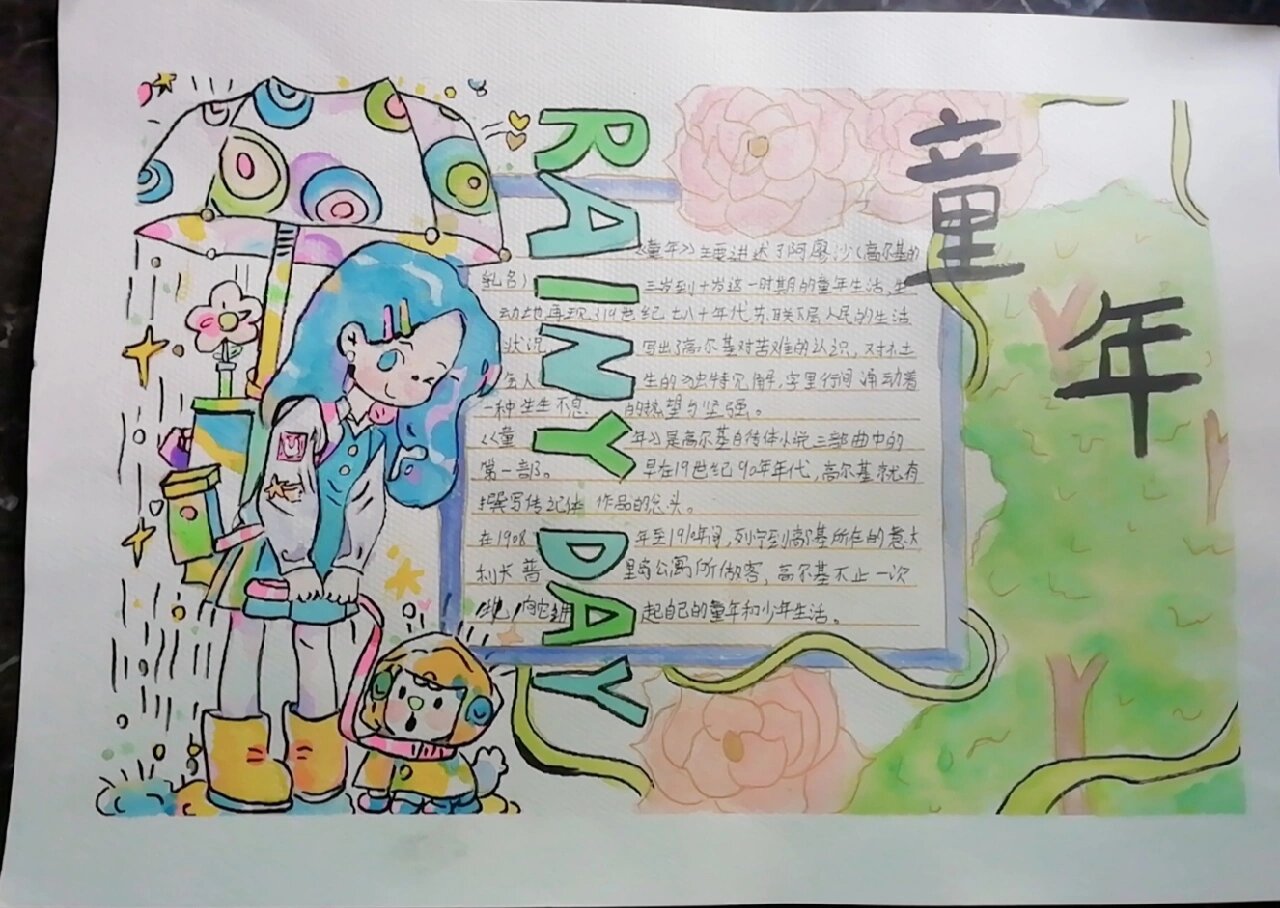 童年
RAINY DAY
《童年》主要讲述了阿廖沙(高尔基的
乳名) 三岁到十岁这一时期的童年生活,生
动地再现了19世纪七八十年代苏联下层人民的生活
状况 写出了高尔基对苦难的认识,对社
会人 生的独特见解,字里行间涌动着
一种生生不息 的热望与坚强。
《童 年》是高尔基自传体小说三部曲中的
第一部。 早在19世纪90年年代,高尔基就有
撰写传记体 作品的念头。
在1908 年至1910年间,列宁到高尔基所在的意大
利卡普 里岛公寓所做客,高尔基不止一次
地向它 起自己的童年和少年生活。